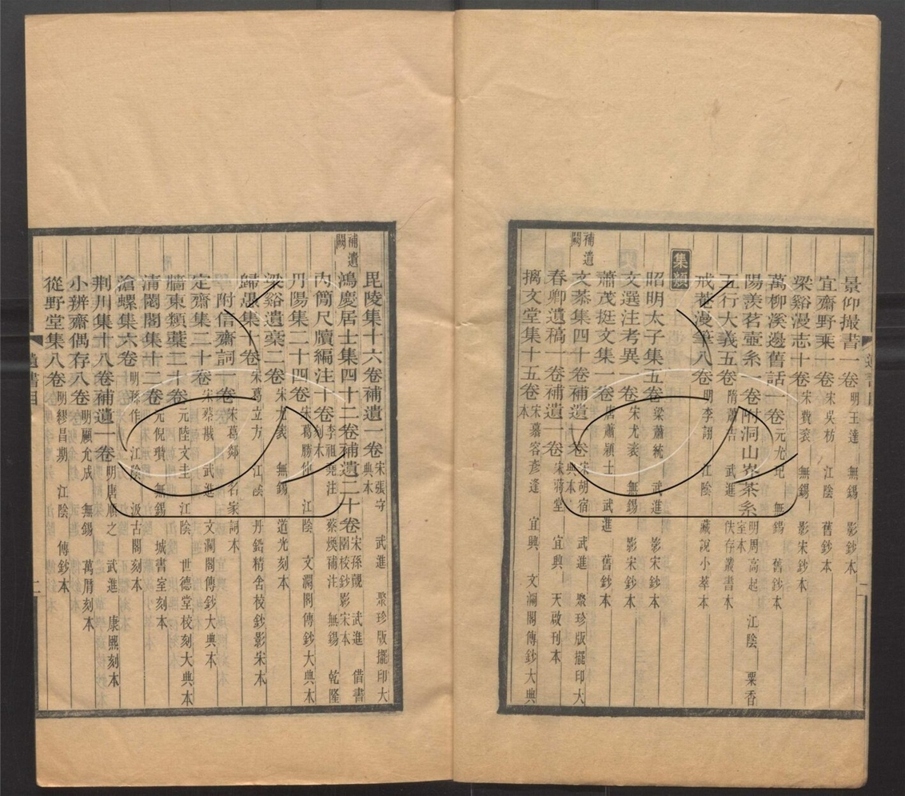 景仰撮書一卷 明王達 無錫 影鈔本
宜齋野乘一卷 宋吳枋 江陰 舊鈔本
梁谿漫志十卷 宋費袞 無錫 影宋鈔本
萬柳溪邊舊話一卷 元尤玘 無錫 舊鈔本
陽羨茗壺系一卷附洞山岕茶系 明周高起 江陰 粟香室本
五行大義五卷 隋蕭吉 武進 佚存叢書本
戒菴漫筆八卷 明李詡 江陰 藏說小萃本
集類
昭明太子集五卷 梁蕭統 武進 影宋鈔本
文選注考異一卷 宋尤袤 無錫 影宋鈔本
蕭茂挺文集一卷 唐蕭穎士 武進 舊鈔本
補遺闕
文恭集四十卷補遺一卷 宋胡宿 武進 聚珍版擺印大典本
春卿遺稿一卷補遺一卷 宋蔣堂 宜興 天啟刊本
摛文堂集十五卷 宋慕容彥逢 宜興 文瀾閣傳鈔大典本
毘陵集十六卷補遺一卷 宋張守 武進 聚珍版擺印大典本
補遺闕
鴻慶居士集四十二卷補遺二十卷 宋孫覿 武進 借書園校鈔影宋本
內簡尺牘編注十卷 李祖堯注 蔡焯補注 無錫 乾隆刻本
丹陽集二十四卷 宋葛勝仲 江陰 文瀾閣傳鈔大典本
梁谿遺稾二卷 宋尤袤 無錫 道光刻本
歸愚集十卷 宋葛立方 江陰 丹鉛精舍校鈔影宋本
附信齋詞一卷 宋葛郯 名家詞本
定齋集二十卷 宋蔡戡 武進 文瀾閣傳鈔大典本
牆東類稾二十卷 元陸文圭 江陰 世德堂校刻大典本
清閟閣集十二卷 元倪瓚 無錫 城書室刻本
滄螺集六卷 明孫作 江陰 汲古閣刻本
荆川集十八卷補遺一卷 明唐順之 武進 康熙刻本
小辨齋偶存八卷 明顧允成 無錫 萬曆刻本
從野堂集八卷 明繆昌期 江陰 傳鈔本
遺書目 二